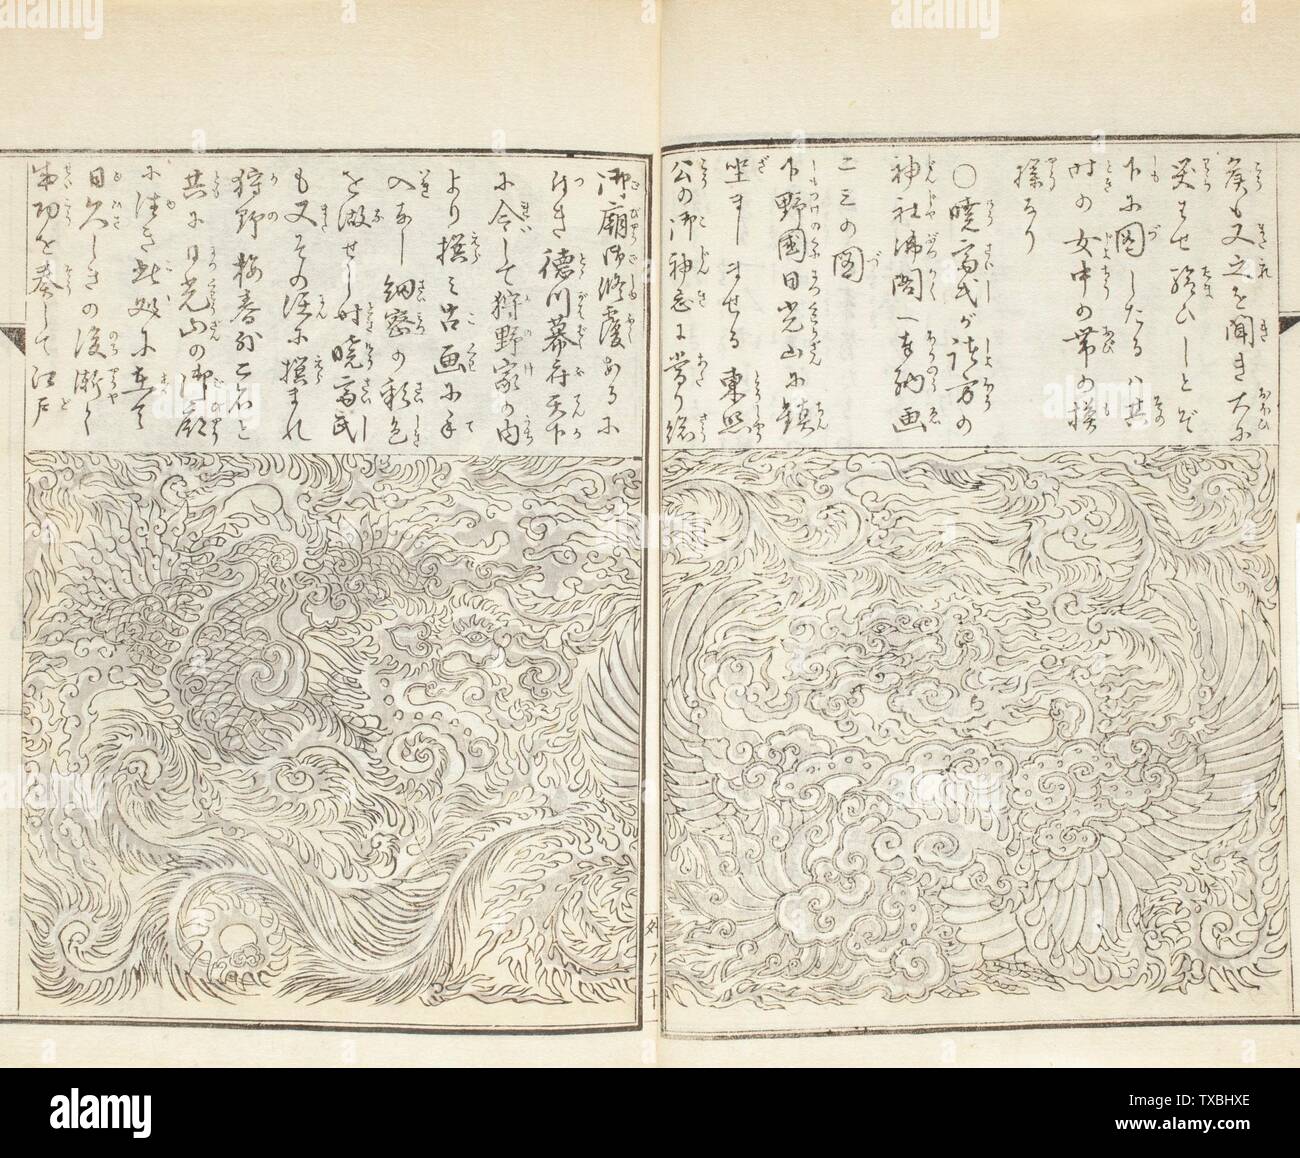 侯も又之を聞き大に
笑はせ給ひしとぞ
下に図したるハ其
時の女中の帯の模
様なり
○暁斎氏が諸方の
神社沛閣へ奉納画
二三の図
下野国日光山に鎮
坐ましませる 東照
公の御神忌に当り総
御廟御修覆あるに
付き 徳川幕府天下
に令して狩野家の内
より撰み古画に手
入なし細密の彩色
を做せし時暁斎氏
も又その張に撰まれ
狩野梅春外二名と
共に日光山の御廟
に詣き此処に在て
日久しきの後漸く
成功を奏して江戸
alamy
TXBHXE
www.alamy.com